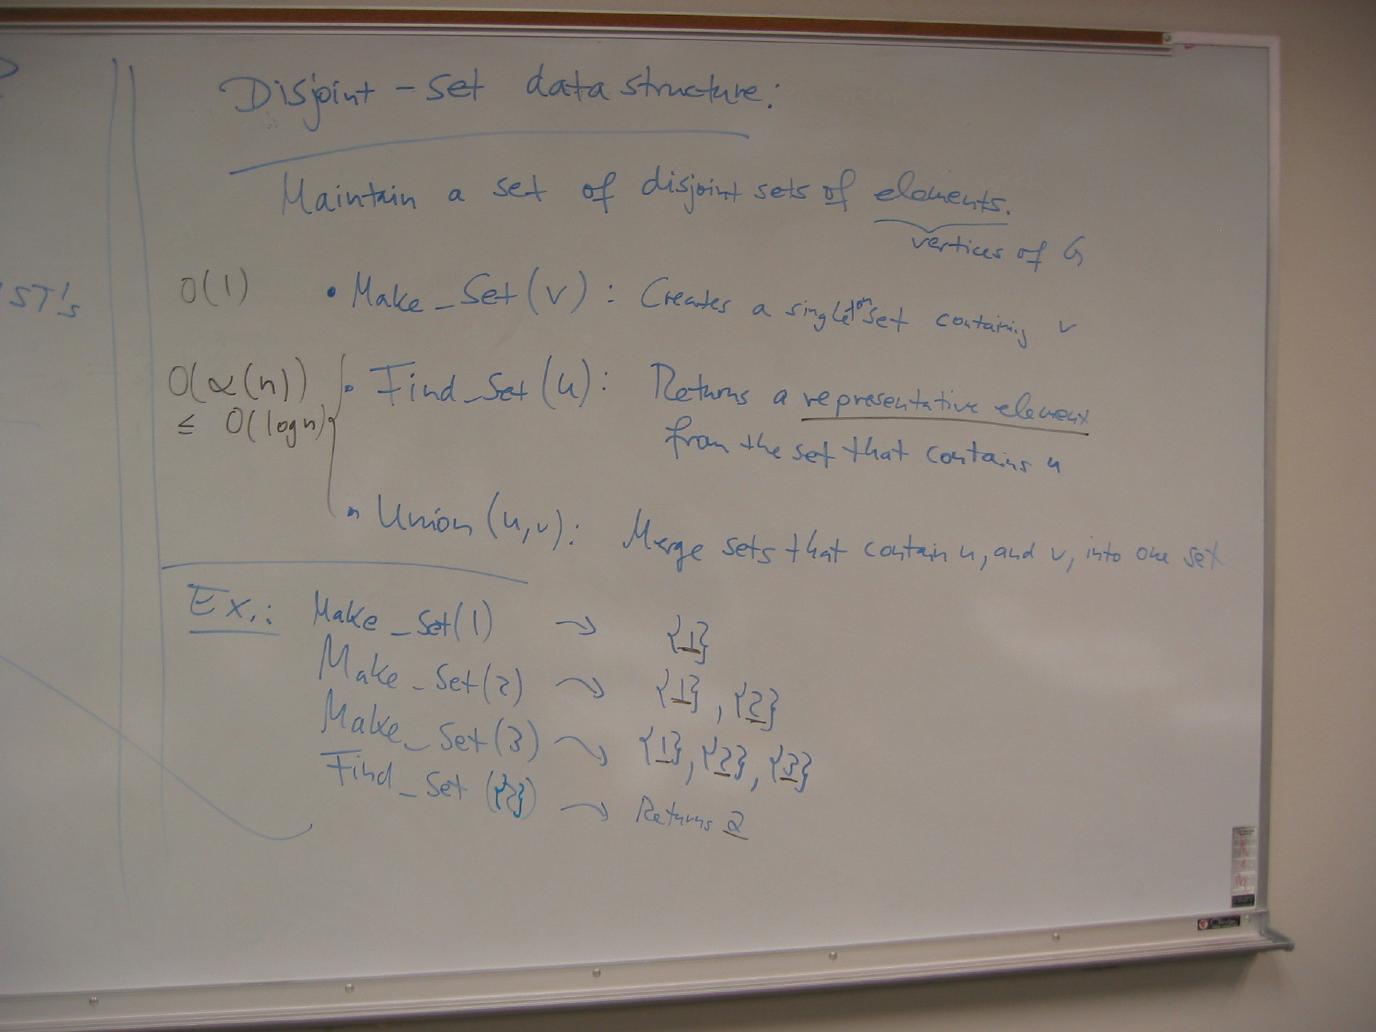 Disjoint-set data structure:
Maintain a set of disjoint sets of elements.
vertices of G
ST's
O(1) • Make_Set(v): Creates a singleton set containing v
O(α(n)) • Find_Set(u): Returns a representative element
≤ O(log n) from the set that contains u
• Union(u,v): Merge sets that contain u, and v, into one set
Ex.: Make_Set(1) → {1}
Make_Set(2) → {1}, {2}
Make_Set(3) → {1}, {2}, {3}
Find_Set ({2}) → Returns 2